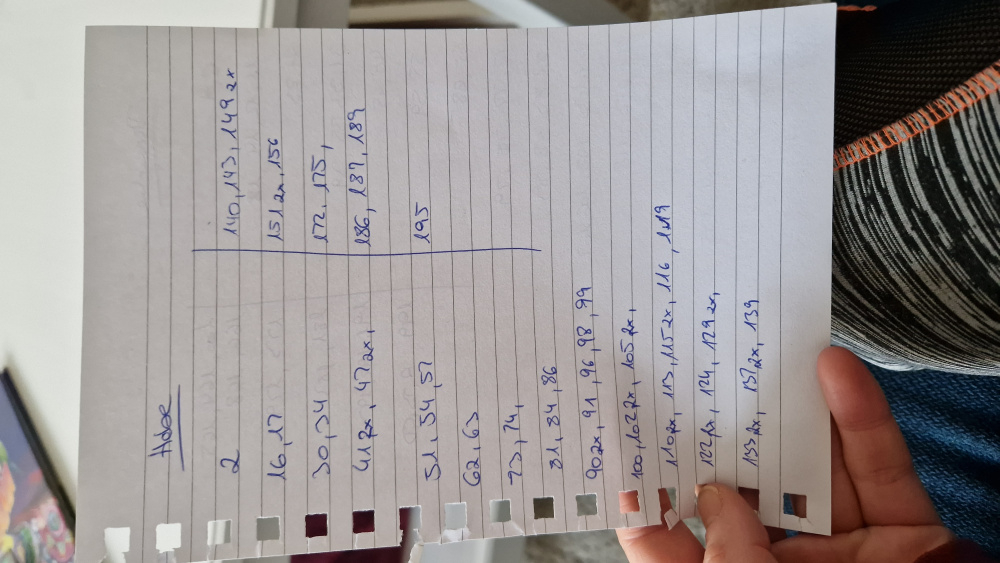 Habe
2
16, 17
30, 34
41 2x, 47 2x,
51, 54, 57
62, 63
73, 74,
81, 84, 86
90 2x, 91, 96, 98, 99
100, 102 2x, 105 2x,
110 2x, 113, 115 2x, 116, 119
122 2x, 124, 129 2x,
133 2x, 137 2x, 139
140, 143, 149 2x
151 2x, 156
172, 175,
186, 187, 189
195